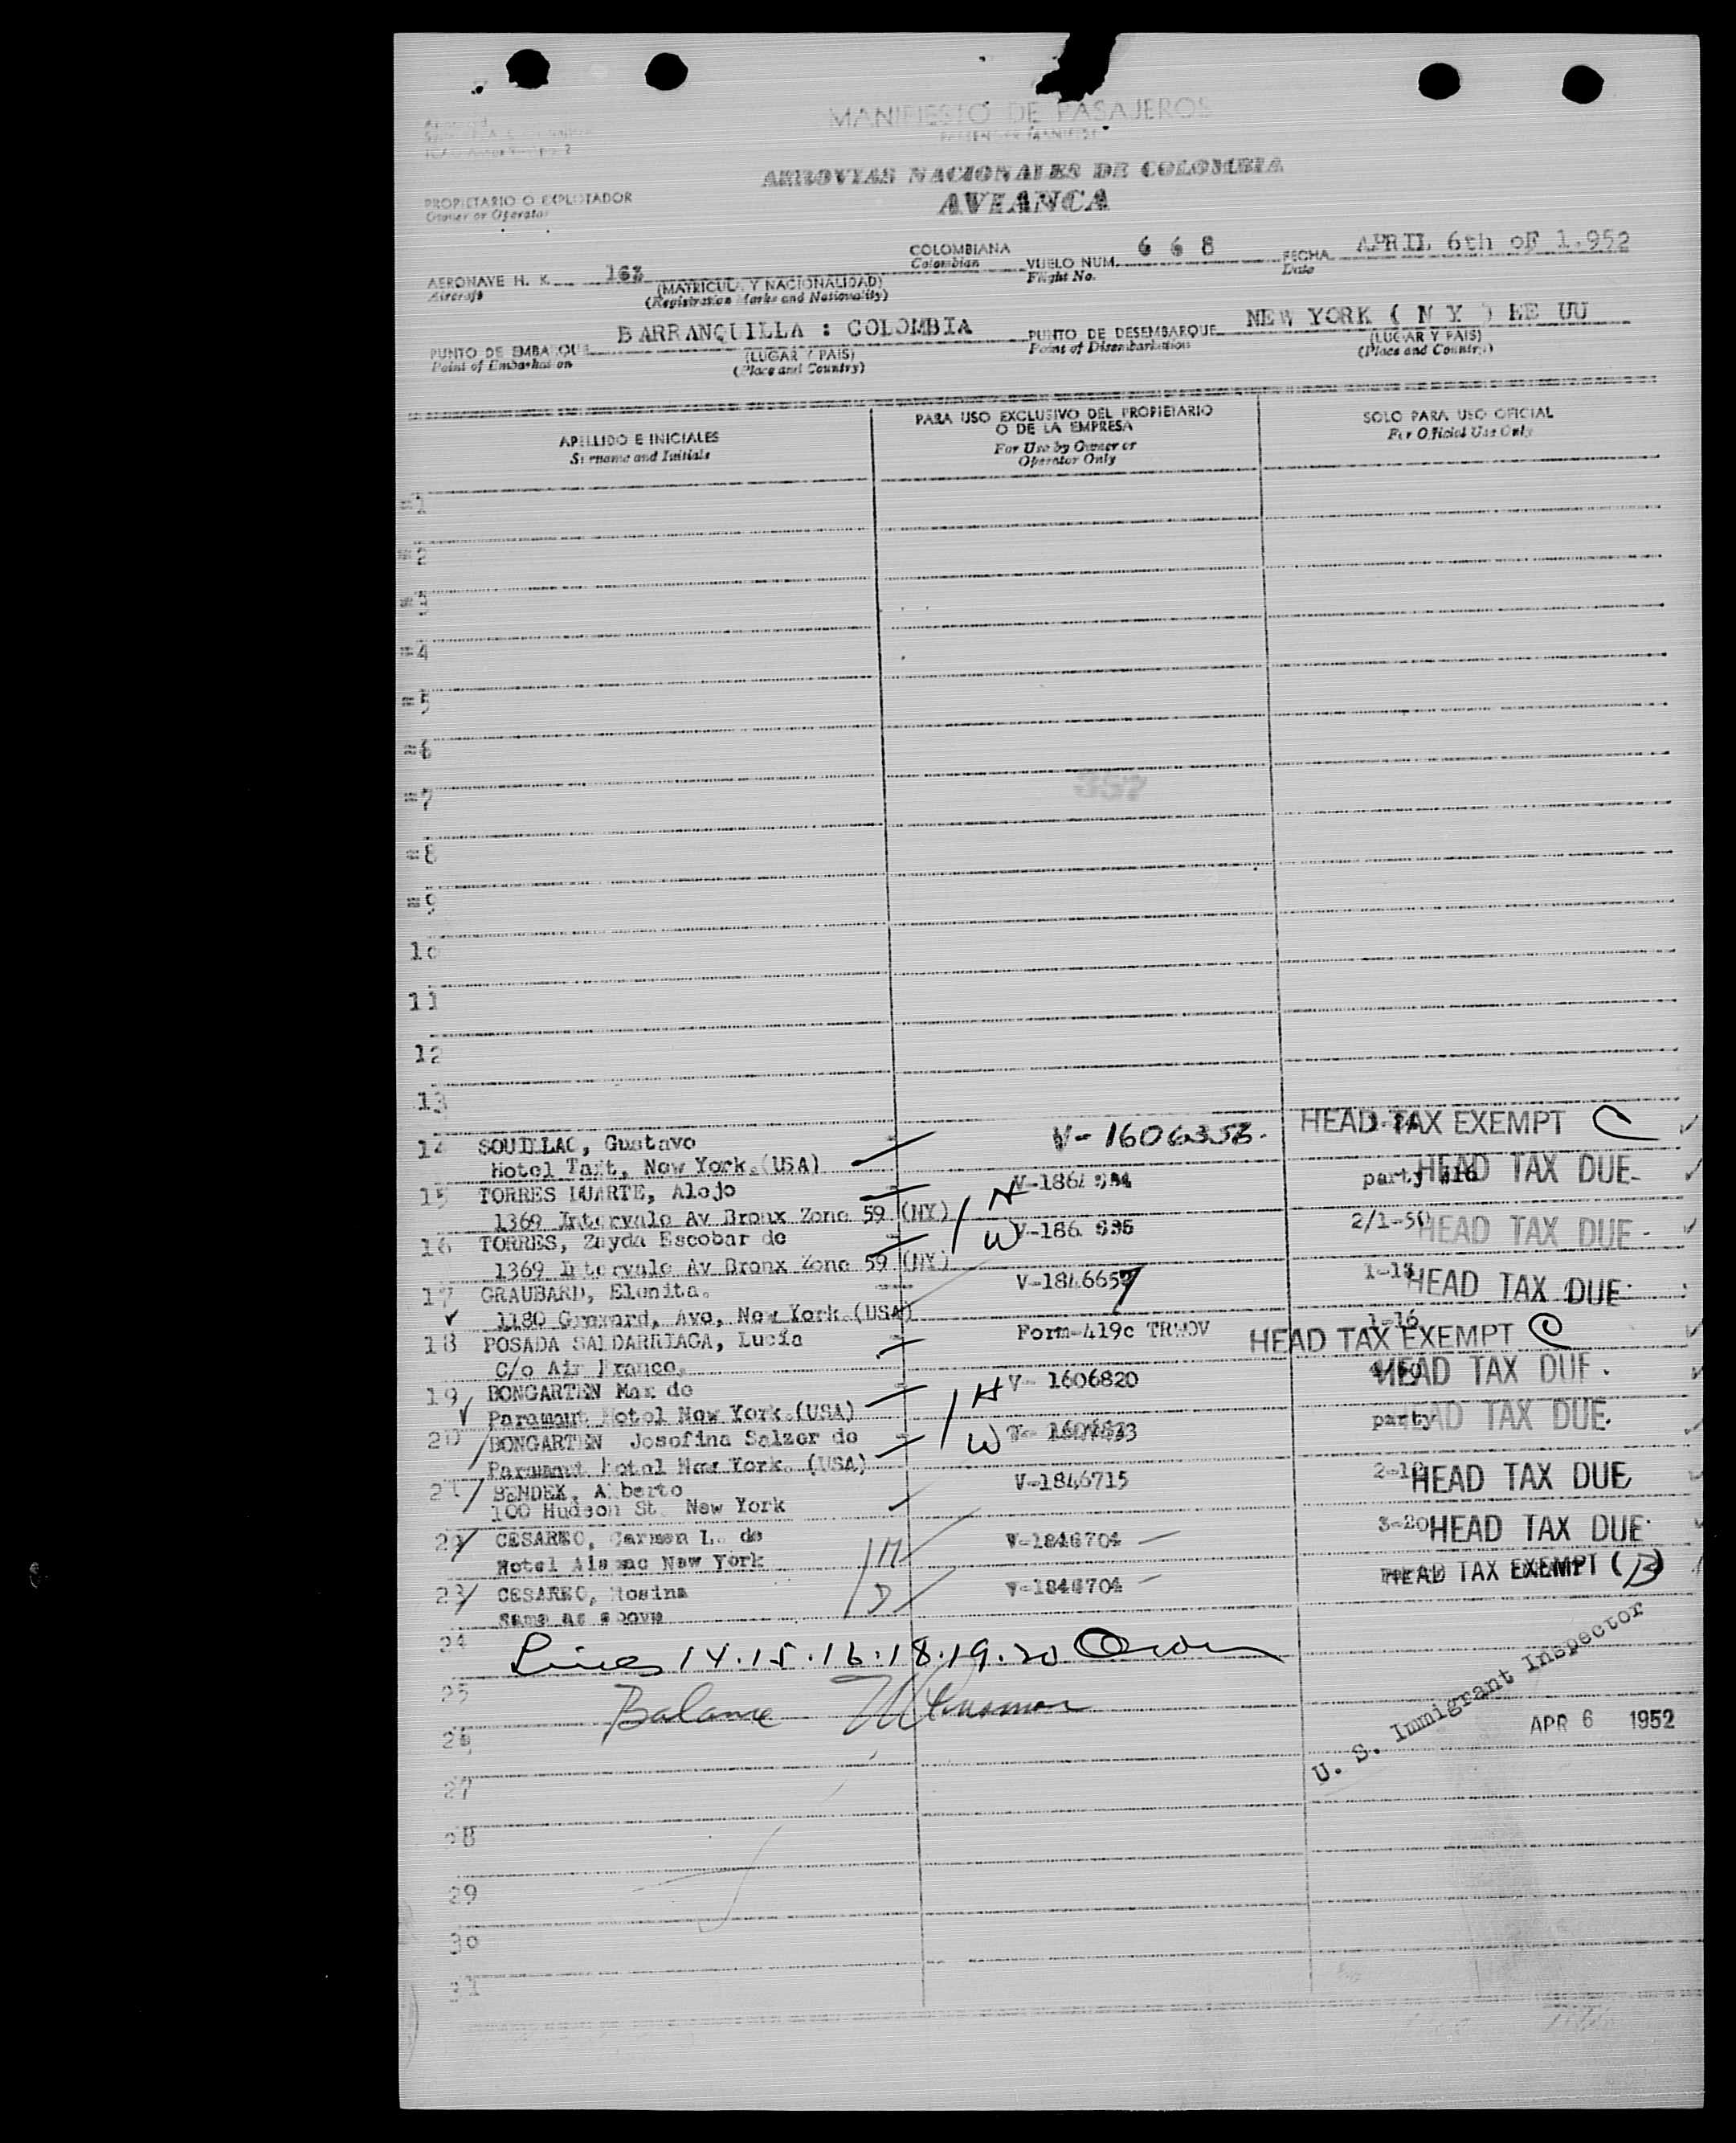 MANIFIESTO DE PASAJEROS
PASSENGER MANIFEST
AEROVIAS NACIONALES DE COLOMBIA
PROPIETARIO O EXPLOTADOR
Owner or Operator
AVIANCA
COLOMBIANA
Colombian
VUELO NUM. 6 6 8
Flight No.
FECHA APRIL 6th oF 1.952
Date
AERONAVE H. K. 163
Aircraft
(MATRICULA Y NACIONALIDAD)
(Registration Marks and Nationality)
PUNTO DE EMBARQUE BARRANQUILLA : COLOMBIA
Point of Embarkation
(LUGAR Y PAIS)
(Place and Country)
PUNTO DE DESEMBARQUE NEW YORK ( N Y ) EE UU
Point of Disembarkation
(LUGAR Y PAIS)
(Place and Country)
APELLIDO E INICIALES
Surname and Initials
PARA USO EXCLUSIVO DEL PROPIETARIO
O DE LA EMPRESA
For Use by Owner or
Operator Only
SOLO PARA USO OFICIAL
For Official Use Only
=1
=2
=3
=4
=5
=6
=7
357
=8
=9
10
11
12
13
14 SOUILLAC, Gustavo V-1606353. HEAD TAX EXEMPT C
Hotel Taft, New York.(USA)
15 TORRES DUARTE, Alejo H party #16 HEAD TAX DUE
1369 Intervale Av Bronx Zone 59 (NY)
16 TORRES, Zayda Escobar de W 2/1-50 HEAD TAX DUE
1369 Intervale Av Bronx Zone 59 (NY)
17 GRAUBARD, Elenita. V-1846657 HEAD TAX DUE
1180 Ave, New York.(USA)
18 POSADA SALDARRIAGA, Lucia Form-419c 1-16 HEAD TAX EXEMPT C
C/o Air France,
19 BONGARTEN Max de H V- 1606820 HEAD TAX DUE.
Paramount Hotel New York.(USA)
20 BONGARTEN Josefina Salzer de W party HEAD TAX DUE.
Paramount Hotel New York. (USA)
21 BENDEK, Alberto V-1846715 HEAD TAX DUE
100 Hudson St. New York
22 CESAREO, Carmen L. de M V-1846704 3-20 HEAD TAX DUE
Hotel Alamac New York
23 CESAREO, Rosina D V-1846704 HEAD TAX EXEMPT (B)
Same as above
24 Lines 14.15.16.18.19.20
25 Balance
26
U. S. Immigrant Inspector
APR 6 1952
27
28
29
30
31